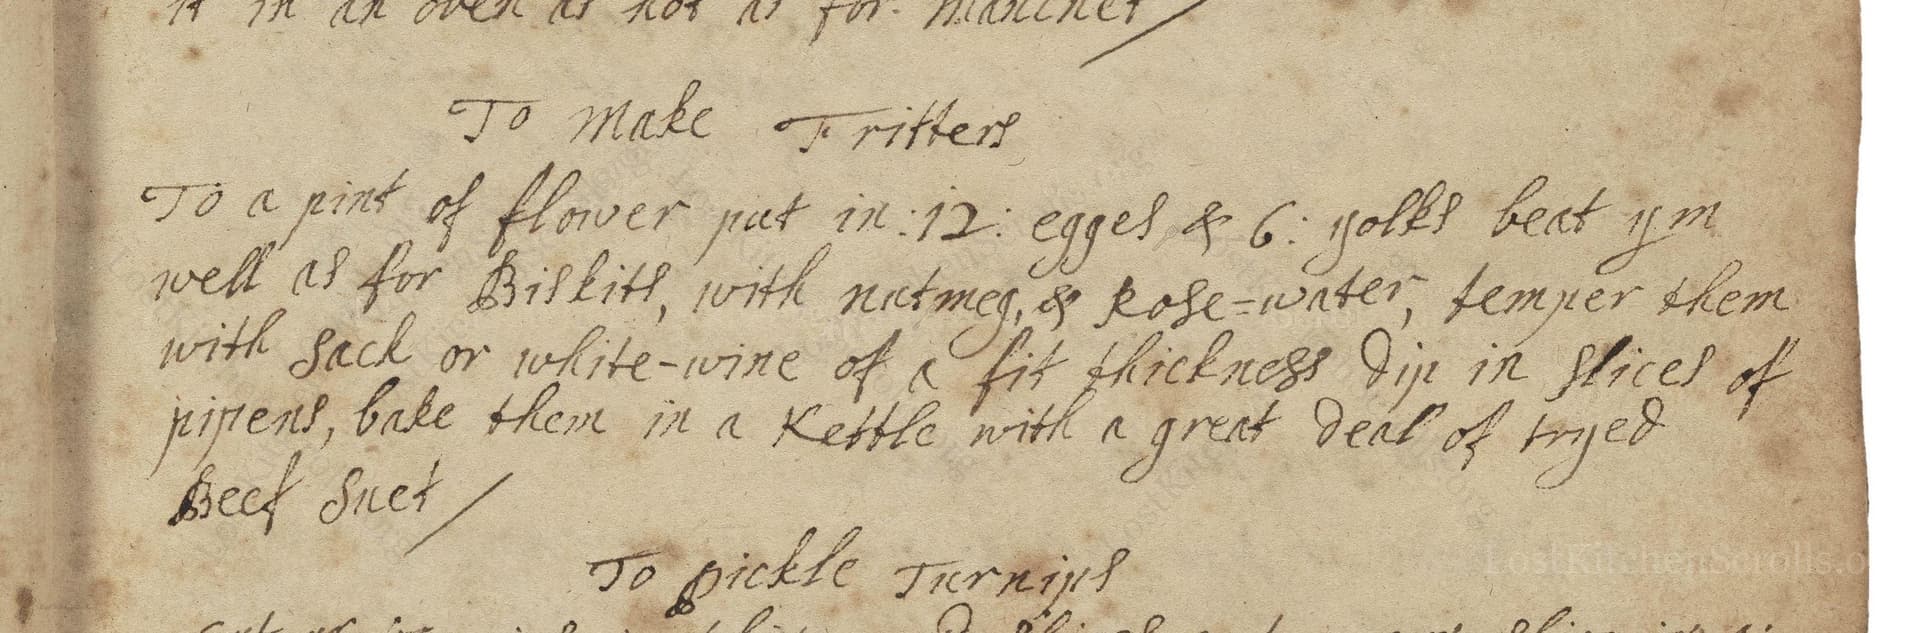 it in an oven as hot as for manchet
To Make Fritters
To a pint of flower put in :12: egges & 6: yolks beat ym
well as for Biskits, with nutmeg, & Rose=water, temper them
with Sack or white-wine of a fit thickness Dip in Slices of
pipens, bake them in a Kettle with a great Deal of tryed
Beef Suet
To pickle Turnips
LostKitchenScrolls.o